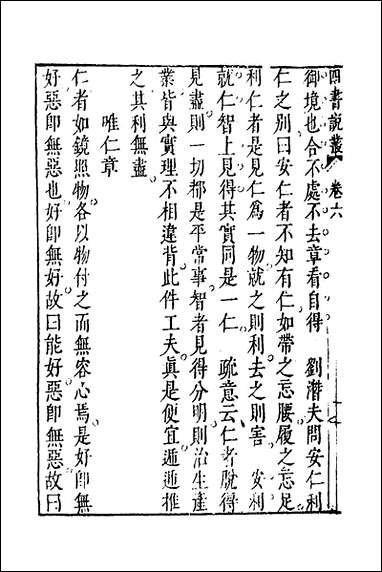 四書說叢 卷六
御境也合不處不去章看自得 劉濳夫問安仁利
仁之別曰安仁者不知有仁如帶之忘腰履之忘足
利仁者是見仁爲一物就之則利去之則害 安利
就仁智上見得其實同是一仁 疏意云仁者脫得
見盡則一切都是平常事智者見得分明則治生產
業皆與實理不相違背此件工夫眞是便宜遞遞推
之其利無盡
唯仁章
仁者如鏡照物各以物付之而無容心焉是好卽無
好惡卽無惡也好卽無好故曰能好惡卽無惡故曰